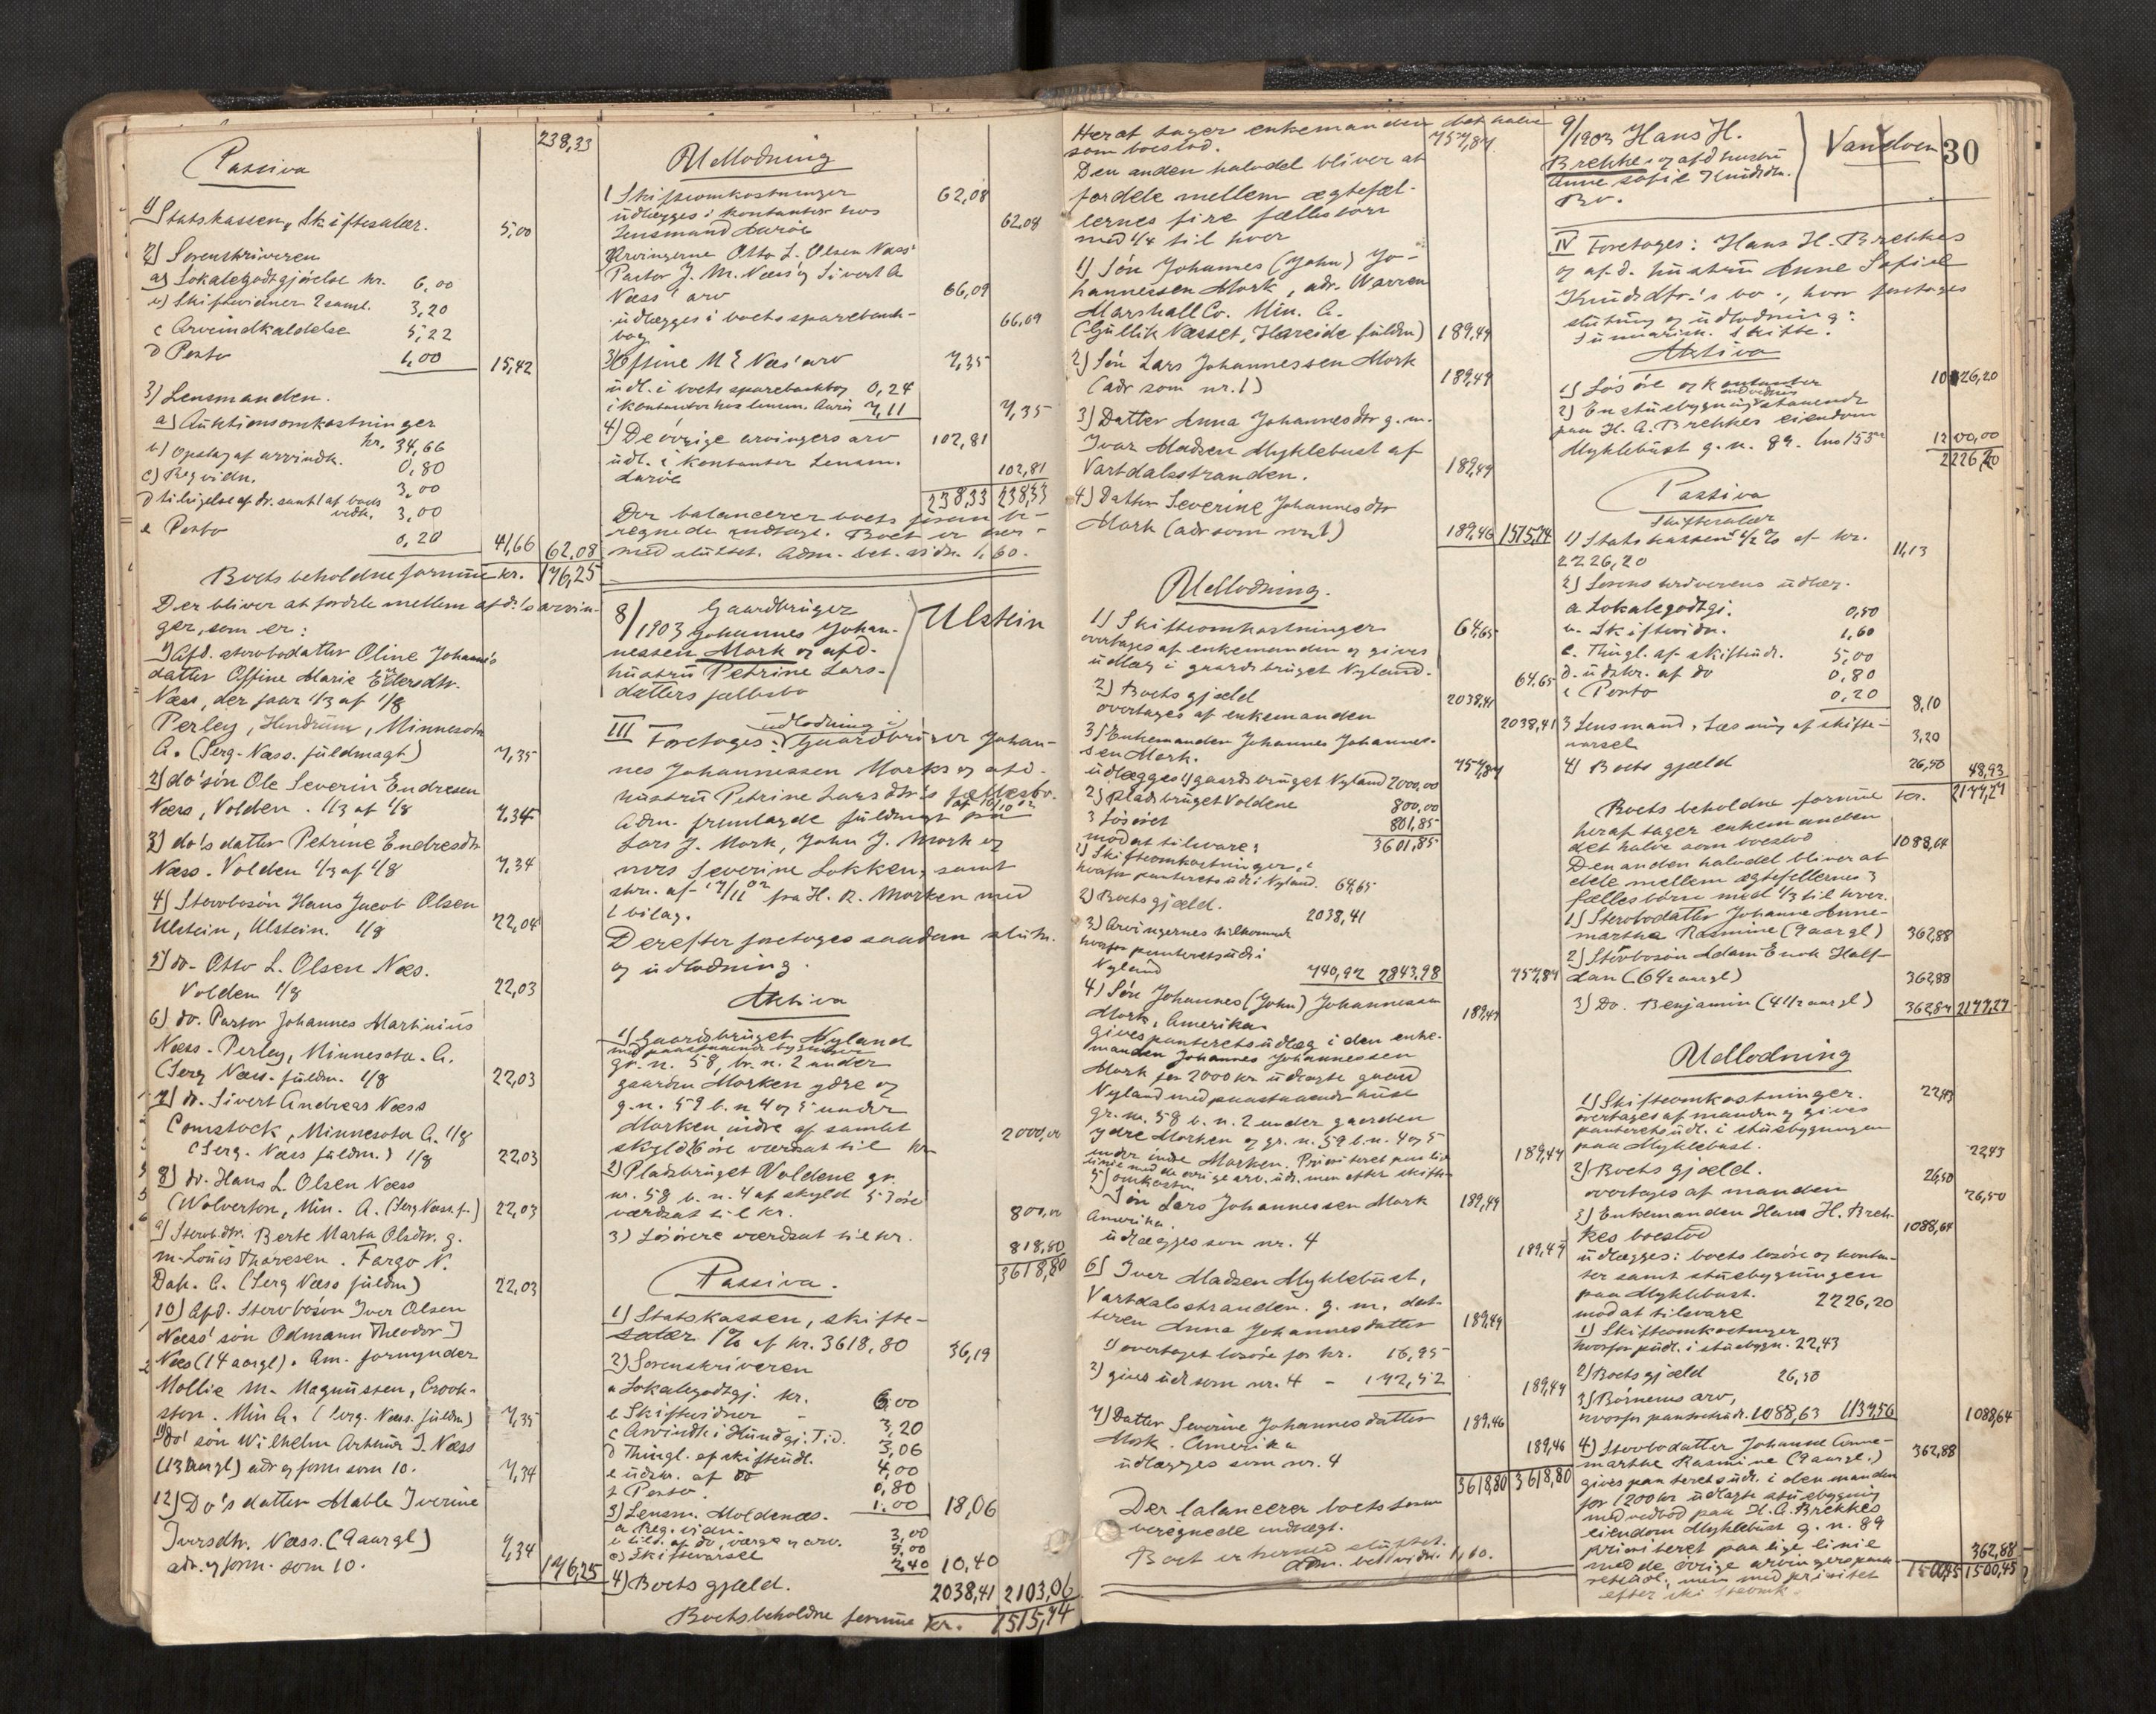 238,33
Passiva
1) Statskassen, Skiftesalær. 5,00
2) Sorenskriveren
a) Lokalegodtgjørelse kr. 6,00
b) Skiftevidner 2 saml. 3,20
c Arveindkaldelse 5,22
d Porto 1,00 15,42
3) Lensmanden.
a) Auktionsomkostninger
kr. 34,66
b) Opslag af arvindk. 0,80
c) Reg vidn. 3,00
d tilsigelse af dr. samt 1 af boets
vedk. 3,00
e Porto 0,20 41,66 62,08
Boets beholdne formue kr. 176,25
Der bliver at fordele mellem afd.'s arvin-
ger, som er:
1) Afd. stervbodatter Oline Johanne's
datter Offine Marie Eilersdtr.
Næss, der faar 1/3 af 1/8
Perley, Hendrum, Minnesota
A. (Serg. Næss. fuldmagt) 7,35
2) do's søn Ole Severin Endresen
Næss, Volden. 1/3 af 1/8 7,34
3) do's datter Petrine Endresdtr
Næss. Volden 1/3 af 1/8 7,34
4) Stervbosøn Hans Jacob Olsen
Ulstein, Ulstein. 1/8 22,04
5) do. Otto L. Olsen Næs.
Volden 1/8 22,03
6) do. Pastor Johannes Martinius
Næss - Perley, Minnesota. A.
(Serg Næss. fuldm. 1/8 22,03
7) do. Sivert Andreas Næss
Comstock, Minnesota A. 1/8
(Serg. Næss fuldm.) 1/8 22,03
8) do. Hans L. Olsen Næss
(Wolverton, Min. A. (Serg Næss. f.) 22,03
9) Stervbdtr. Berte Marta Olsdtr. g.
m. Louis Thoresen. Fargo N.
Dak. A. (Serg Næss fuldm) 22,03
10) Afd. Stervbosøn Iver Olsen
Næss' søn Odmann Theodor I
Næs (14 aargl). Am. formynder
Mollie M. Magnussen, Crook-
ston. Min A. (Serg. Næss. fuldm) 7,35
11) do' søn Wilhelm Arthur I. Næss
(13 aargl) adr og form som 10. 7,34
12) Do's datter Mable Iverine
Iversdtr. Næss. (9 aargl) 7,34
adr. og form. som 10. 176,25
Udlodning
1 Skifteomkostninger 62,08
udlægges i kontanter hos
Lensmand Aurvoll 62,08
Arvingerne Otto L. Olsen Næss'
Pastor J. M. Næss' og Sivert A
Næss' arv 66,09
udlægges i boets sparebank-
bog 66,09
3) Offine M E Næs' arv 7,35
udl. i boets sparebankbog 0,24
i kontanter hos lensm. 7,11 7,35
4) De øvrige arvingers arv 102,81
udl. i kontanter Lensm. 102,81
238,33 238,33
Der balancerer boets forøvrigt be-
regnede indtægt. Boet er her-
med sluttet. Adm. bet. vidn. 1,60.
8/1903 Gaardbruger
Johannes Johan-
nessen Mork og afd.
hustru Petrine Lars-
datters fællesbo
Ulstein
III Foretoges: udlodning i Gaardbruger Johan-
nes Johannessen Morks og afd.
hustru Petrine Larsdtr's fællesbo.
Adm. fremlagde fuldmagt af 10/10 02 fra
Lars J. Mork, John J. Mork og
mrs Severine Løkken, samt
skr. af 17/11 02 fra H. R. Morken med
1 bilag.
Derefter foretoges saadan slutn.
og udlodning.
Aktiva
1) Gaardsbruget Nyland
med paastaaende bygninger
gr. n. 58, br. n. 2 under
gaarden Morken ydre og
g. n. 59 b. n 4 og 5 under
Morken indre af samlet
skyld 16 øre værdsat til kr 2000,00
2) Pladsbruget Voldene gr.
nr. 58 b. n. 4 af skyld 53 øre
værdsat til kr. 800,00
3) Løsøre værdsat til kr. 818,80
3618,80
Passiva.
1) Statskassen, skifte-
salær 1% af kr. 3618,80 36,19
2) Sorenskriveren
a Lokalegodtgj. kr. 6,00
b Skiftevidner - 3,20
c Arvindk. i Kundgj. Tid. 3,06
d Thingl. af skifteudl. 4,00
e udskr. af do 0,80
f Porto. 1.00 18,06
3) Lensm. Moldenæs.
a Reg. vidn. 3,00
b tils. af do, værge og arv. 5,00
c) Skiftevarsel 2,40 10,40
4) Boets gjæld. 2038,41 2103,06
Boets beholdne formue kr. 1515,74
Heraf tager enkemanden det halve
som boeslod. 757,87
Den anden halvdel bliver at
fordele mellem ægtefæl-
lernes fire fællesbørn
med 1/4 til hver
1) Søn Johannes (John) Jo-
hannessen Mork, adr. Warren
Marshall Co. Min. A.
(Gullik Næsset, Hareide fuldm) 189,49
2) Søn Lars Johannessen Mork
(adr som nr. 1) 189,49
3) Datter Anna Johannesdtr g. m.
Ivar Madsen Myklebust af
Vartdalsstranden. 189,49
4) Datter Severine Johannesdtr
Mork (adr som nr. 1) 189,46 1515,74
Udlodning.
1) Skifteomkostninger 64,65
overtages af enkemanden og gives
udlæg i gaardsbruget Nyland. 64,65
2) Boets gjæld 2038,41
overtages af enkemanden 2038,41
3) Enkemanden Johannes Johannes-
sen Mork. 757,87
udlægges 1) gaardsbruget Nyland 2000,00
2) pladsbruget Voldene 800,00
3 Løsøret 801,85
3601,85
mod at tilsvare:
1) Skifteomkostninger,
hvorfor panteretsudl i Nyland. 64,65
2) Boets gjæld. 2038,41
3) Arvingernes tilkommende
hvorfor panteretsudl i
Nyland 740,92 2843,98 757,87
4) Søn Johannes (John) Johannessen
Mork, Amerika. 189,49
gives panteretsudlæg i den enke-
manden Johannes Johannessen
Mork for 2000 kr udlagte gaard
Nyland med paastaaende huse
gr. n. 58 b. n. 2 under gaarden
ydre Morken og gr. n. 59 b. n. 4 og 5
under indre Morken. Prioriteret paa lige
linie med de øvrige arv. udl. men efter skifte-
omkostn. 189,49
5) Søn Lars Johannessen Mork 189,49
Amerika.
udlægges som nr. 4 189,49
6) Iver Madsen Myklebust,
Vartdalsstranden. g. m. dat-
teren Anna Johannesdatter 189,49
1) overtaget løsøre for kr. 16,95
2) gives udl som nr. 4 - 172,52 189,49
7) Datter Severine Johannesdatter 189,46
Mork. Amerika
udlægges som nr. 4 189,46
3618,80 3618,80
Der balancerer boets
beregnede indtægt.
Boet er hermed sluttet.
Adm. bet. vidn. 1,60.
9/1903 Hans H.
Brekke og afd hustru
Anne Sofie Knudsdtr.
Bo.
Vandven 30
IV Foretoges: Hans H. Brekkes
og afd. hustru Anne Sofie
Knudsdtr.'s bo, hvor foretoges
slutning og udlodning:
summarisk skifte.
Aktiva
1) Løsøre og kontanter 1026,20
2) En stuebygning med vedbod staaende
paa H. A. Brekkes eiendom
Myklebust g. n. 89. 1200,00
2226,20
Passiva
Skiftesalær
1) Statskassen 1/2 % af kr.
2226,20 11,13
2) Sorenskriverens udlæg.
a Lokalegodtgj. 0,50
b. Skiftevidn. 1,60
c. Thingl. af skifteudl. 5,00
d. udskr. af do 0,80
e Porto 0,20 8,10
3 Lensmand, Læsning af skifte-
varsel 3,20
4) Boets gjæld 26,50 48,93
Boets beholdne formue kr. 2177,27
heraf tager enkemanden
det halve som boeslod 1088,64
Den anden halvdel bliver at
dele mellem ægtefellernes 3
fællesbørn med 1/3 til hver.
1) Stervbodatter Johanne Anne-
martha Rasmine (9 aargl) 362,88
2) Stervbosøn Adam Enok Half-
dan (6 1/2 aargl) 362,88
3) Do. Benjamin (4 1/2 aargl) 362,87 2177,27
Udlodning
1) Skifteomkostninger. 22,43
overtages af manden og gives
panteretsudl. i stuebygningen
paa Myklebust. 22,43
2) Boets gjæld. 26,50
overtages af manden 26,50
3) Enkemanden Hans H. Brek-
kes boeslod 1088,64
udlægges: boets løsøre og kontan-
ter samt stuebygningen
paa Myklebust. 2226,20
mod at tilsvare
1) Skifteomkostninger
hvorfor pudl. i stuebygn. 22,43
2) Boets gjæld 26,50
3) Børnenes arv,
hvorfor panteretsudl. 1088,63 1137,56 1088,64
4) Stervbodatter Johanne Anne-
martha Rasmine (9 aargl.) 362,88
gives panteretsudl. i den manden
for 1200 kr udlagte stuebygning
med vedbod paa H. A. Brekkes
eiendom Myklebust g. n. 89
prioriteret paa lige linie
med de øvrige arvingers pante-
retsudl., men med prioritet
efter skifteomk. 362,88
1500,45 1500,45